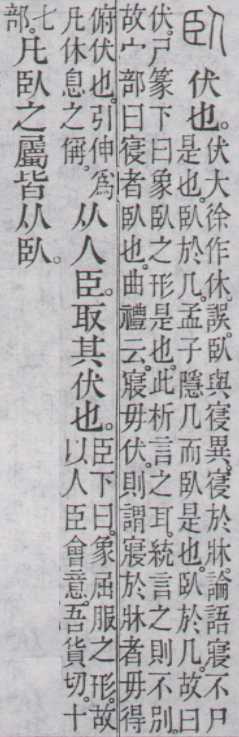 臥 伏也。伏大徐作休。誤。臥與寑異。寑於牀。論語寑不尸
是也。臥於几。孟子隱几而臥是也。臥於几。故曰
伏。尸篆下曰。象臥之形是也。此析言之耳。統言之則不別。
故宀部曰寑者臥也。曲禮云。寢毋伏。則謂寢於牀者毋得
俯伏也。引伸爲
凡休息之偁。
从人臣。取其伏也。
臣下曰。象屈服之形。故
以人臣會意。吾貨切。十
七
部。
凡臥之屬皆从臥。